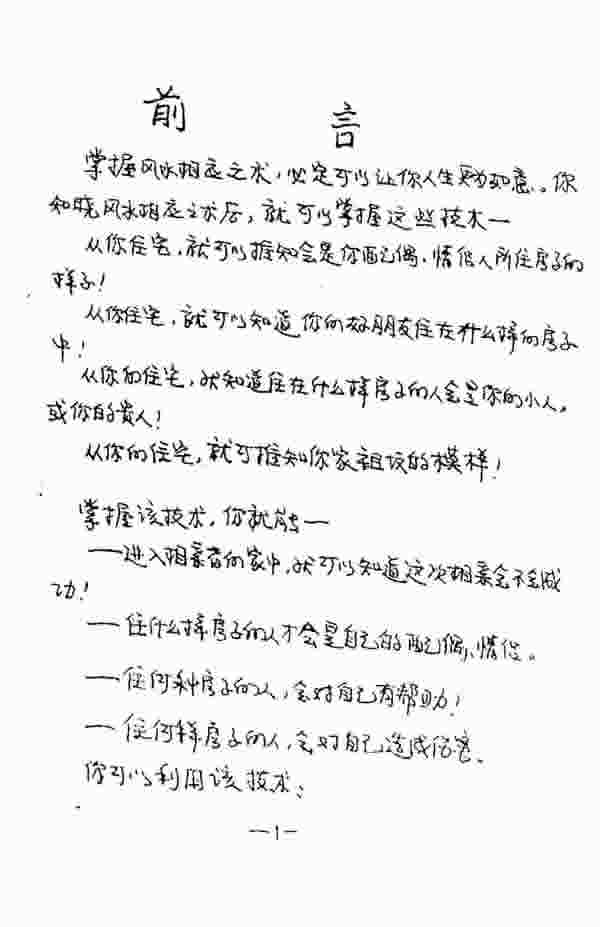 前 言
掌握风水相应之术，必定可以让你人生更为如意。你
知晓风水相应之术后，就可以掌握这些技术一
从你住宅，就可以推知会是你配偶、情侣人所住房子的
样子！
从你住宅，就可以知道你的好朋友住在什么样的房子
中！
从你的住宅，就知道住在什么样房子的人会是你的小人，
或你的贵人！
从你的住宅，就可推知你家祖坟的模样！
掌握该技术，你就能一
一进入相亲者的家中，就可以知道这次相亲会不会成
功！
一住什么样房子的人才会是自己的配偶、情侣。
一住何种房子的人，会对自己有帮助！
一住何样房子的人，会对自己造成伤害。
你可以利用该技术：
—1—